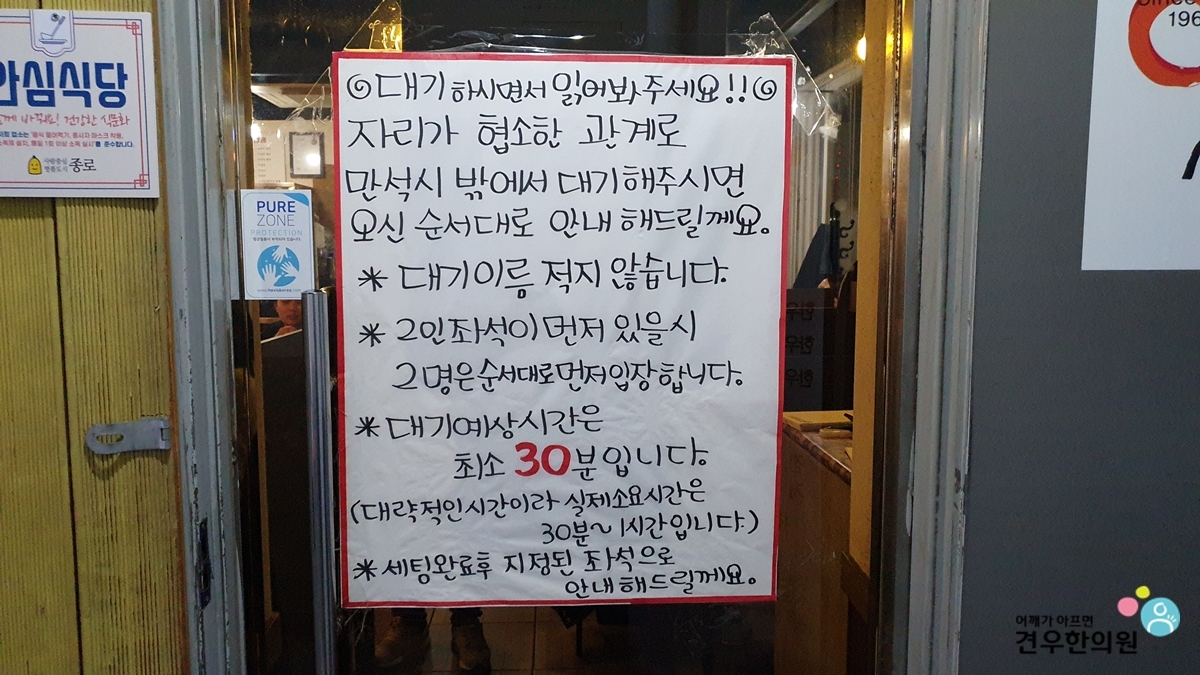 안심식당
음식 덜어먹기, 종사자 마스크 착용,
사람중심 명품도시 종로
PURE
ZONE
PROTECTION
◎대기 하시면서 읽어봐주세요!!◎
자리가 협소한 관계로
만석시 밖에서 대기해주시면
오신 순서대로 안내해드릴께요.
* 대기이름 적지 않습니다.
* 2인좌석이 먼저 있을시
2명은순서대로먼저입장합니다.
* 대기예상시간은
최소 30분입니다.
(대략적인시간이라 실제소요시간은
30분~1시간입니다)
* 세팅완료후 지정된 좌석으로
안내해드릴께요.
Since
196
어깨가 아프면
견우한의원